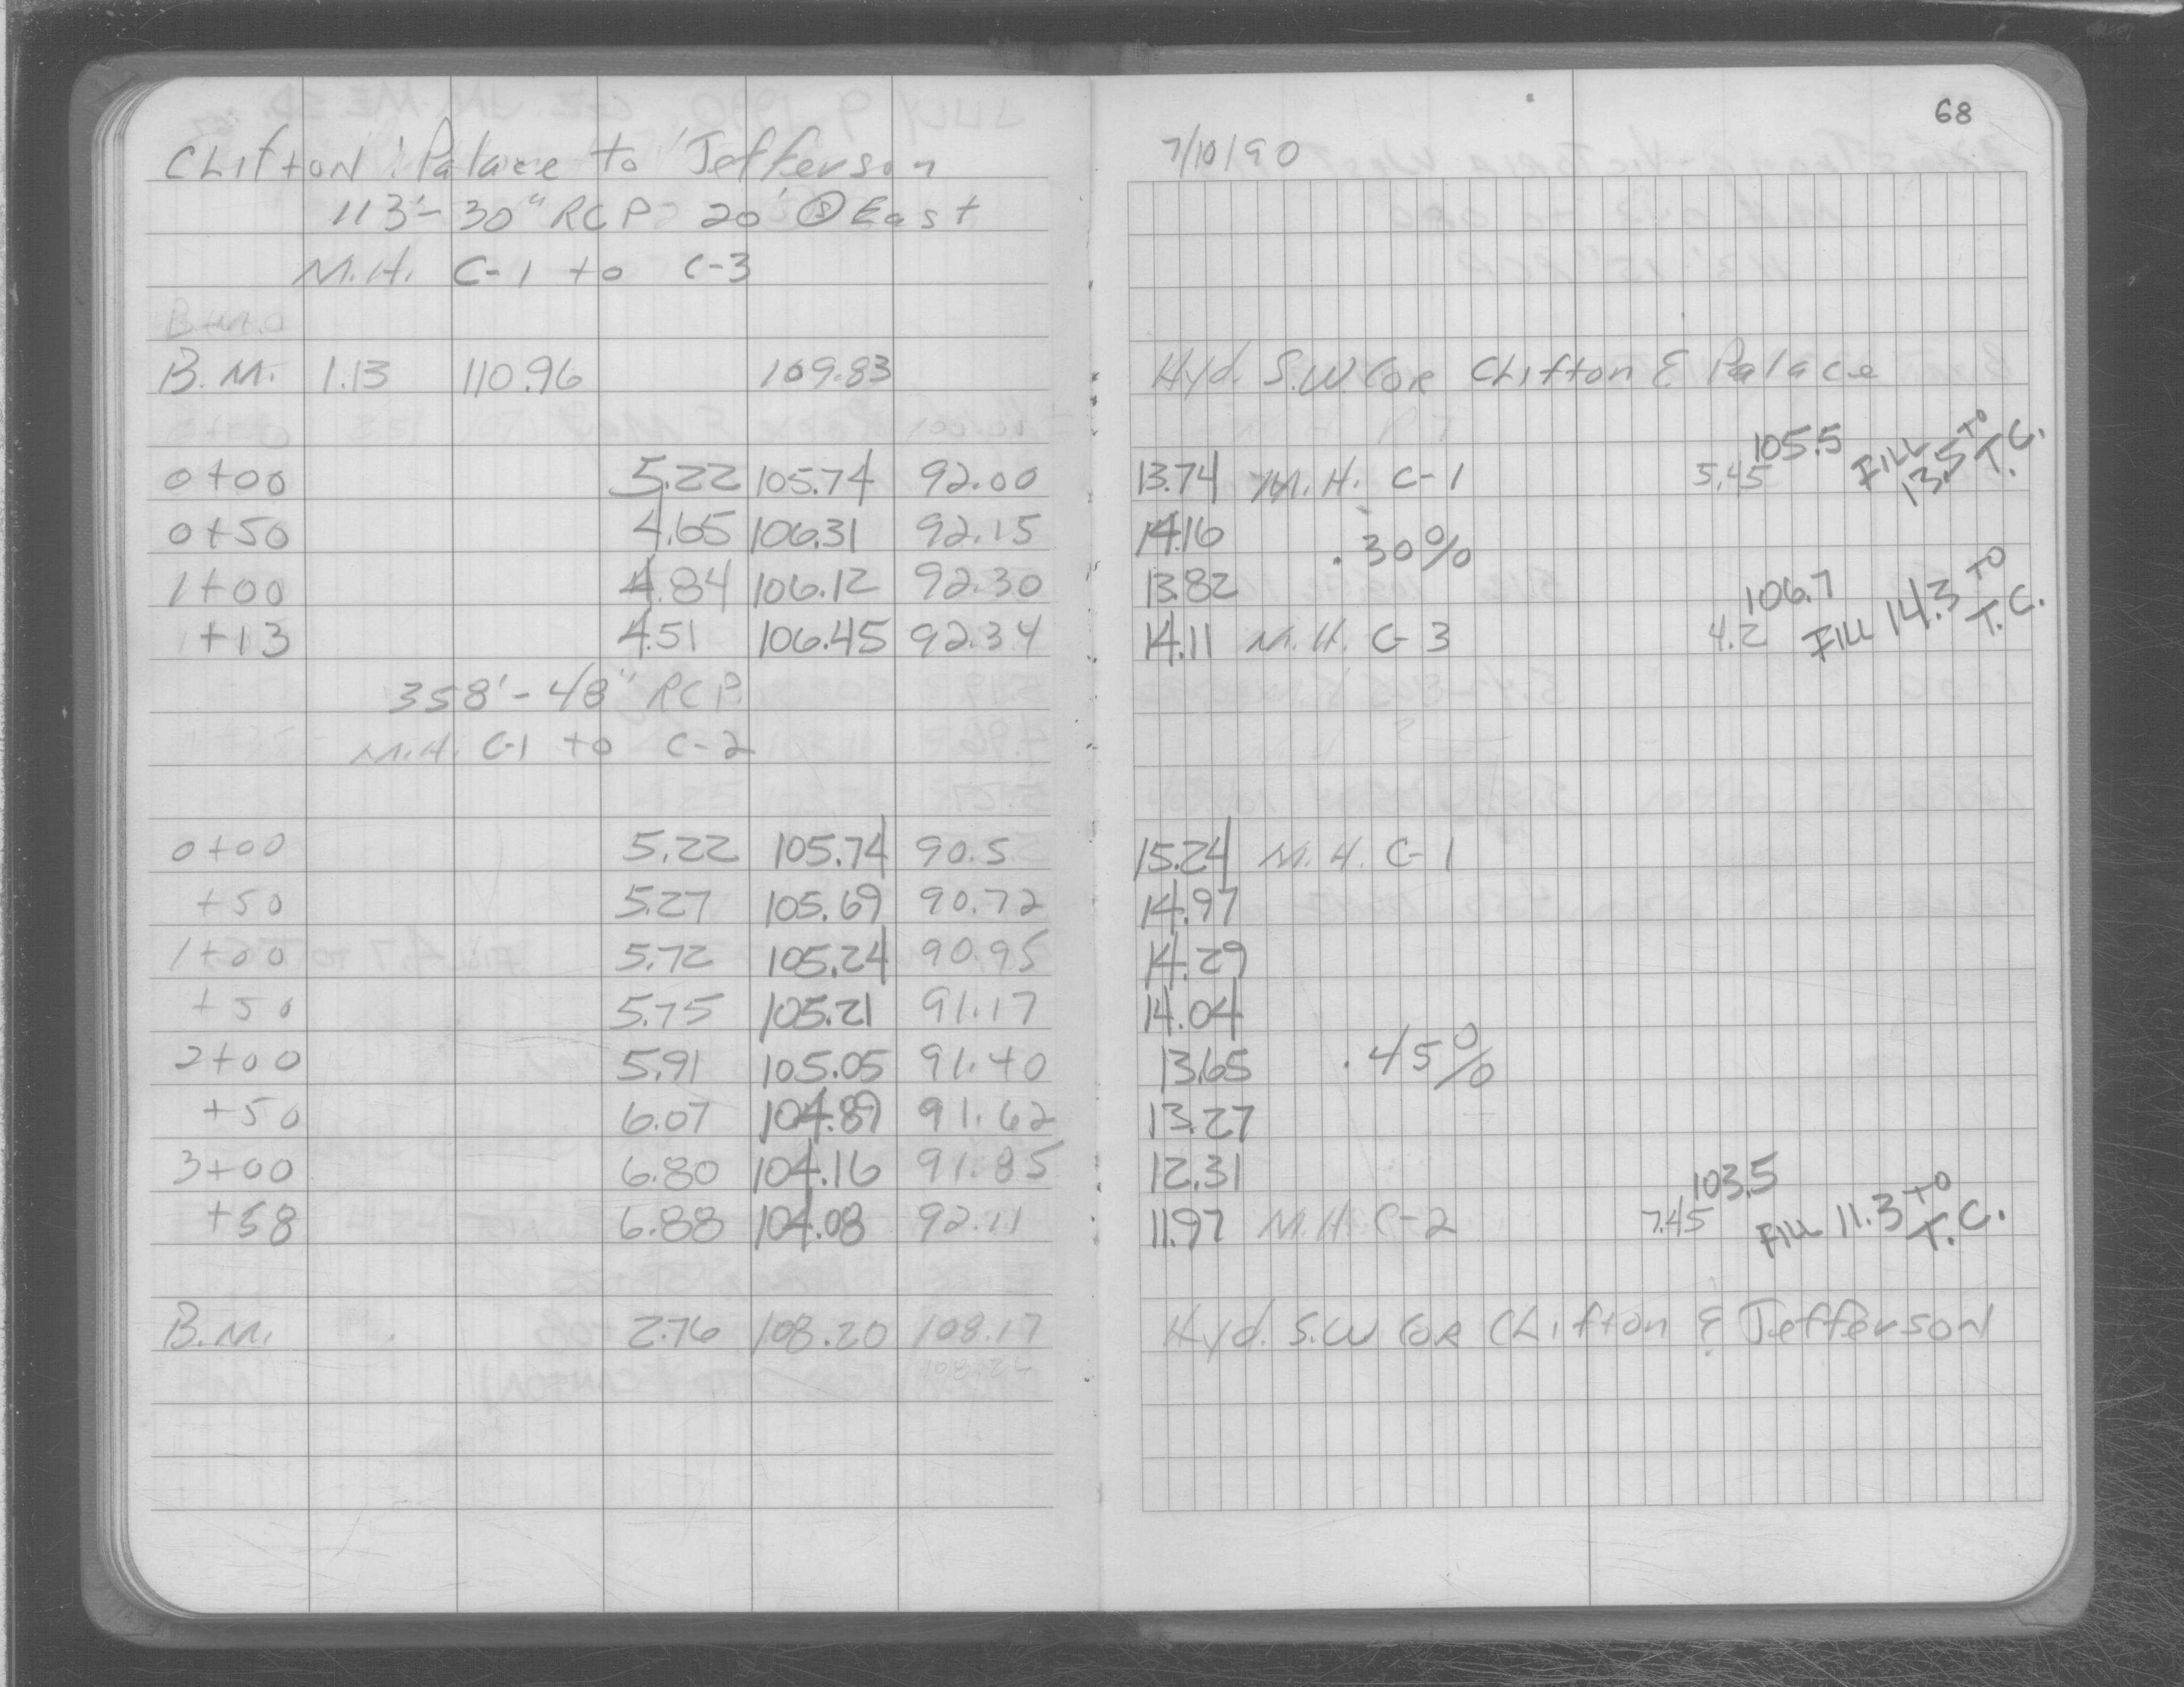 68
Clifton : Palace to Jefferson
7/10/90
113'- 30" RCP 20' Ⓢ East
M.H. C-1 to C-3
B.M. 1.13 110.96 109.83 Hyd. S.W. Cor Clifton & Palace
0+00 5.22 105.74 92.00 13.74 M.H. C-1 5.45 105.5 FILL 13.5 TO T.C.
0+50 4.65 106.31 92.15 14.16 .30%
1+00 4.84 106.12 92.30 13.82
1+13 4.51 106.45 92.34 14.11 M.H. C-3 4.2 106.7 FILL 14.3 TO T.C.
358'- 48" RCP.
M.H. C-1 to C-2
0+00 5.22 105.74 90.5 15.24 M.H. C-1
+50 5.27 105.69 90.72 14.97
1+00 5.72 105.24 90.95 14.29
+50 5.75 105.21 91.17 14.04
2+00 5.91 105.05 91.40 13.65 .45%
+50 6.07 104.89 91.62 13.27
3+00 6.80 104.16 91.85 12.31
+58 6.88 104.08 92.11 11.97 M.H. C-2 7.45 103.5 FILL 11.3 TO T.C.
B.M. 2.76 108.20 108.17 Hyd. S.W Cor Clifton & Jefferson
108.24